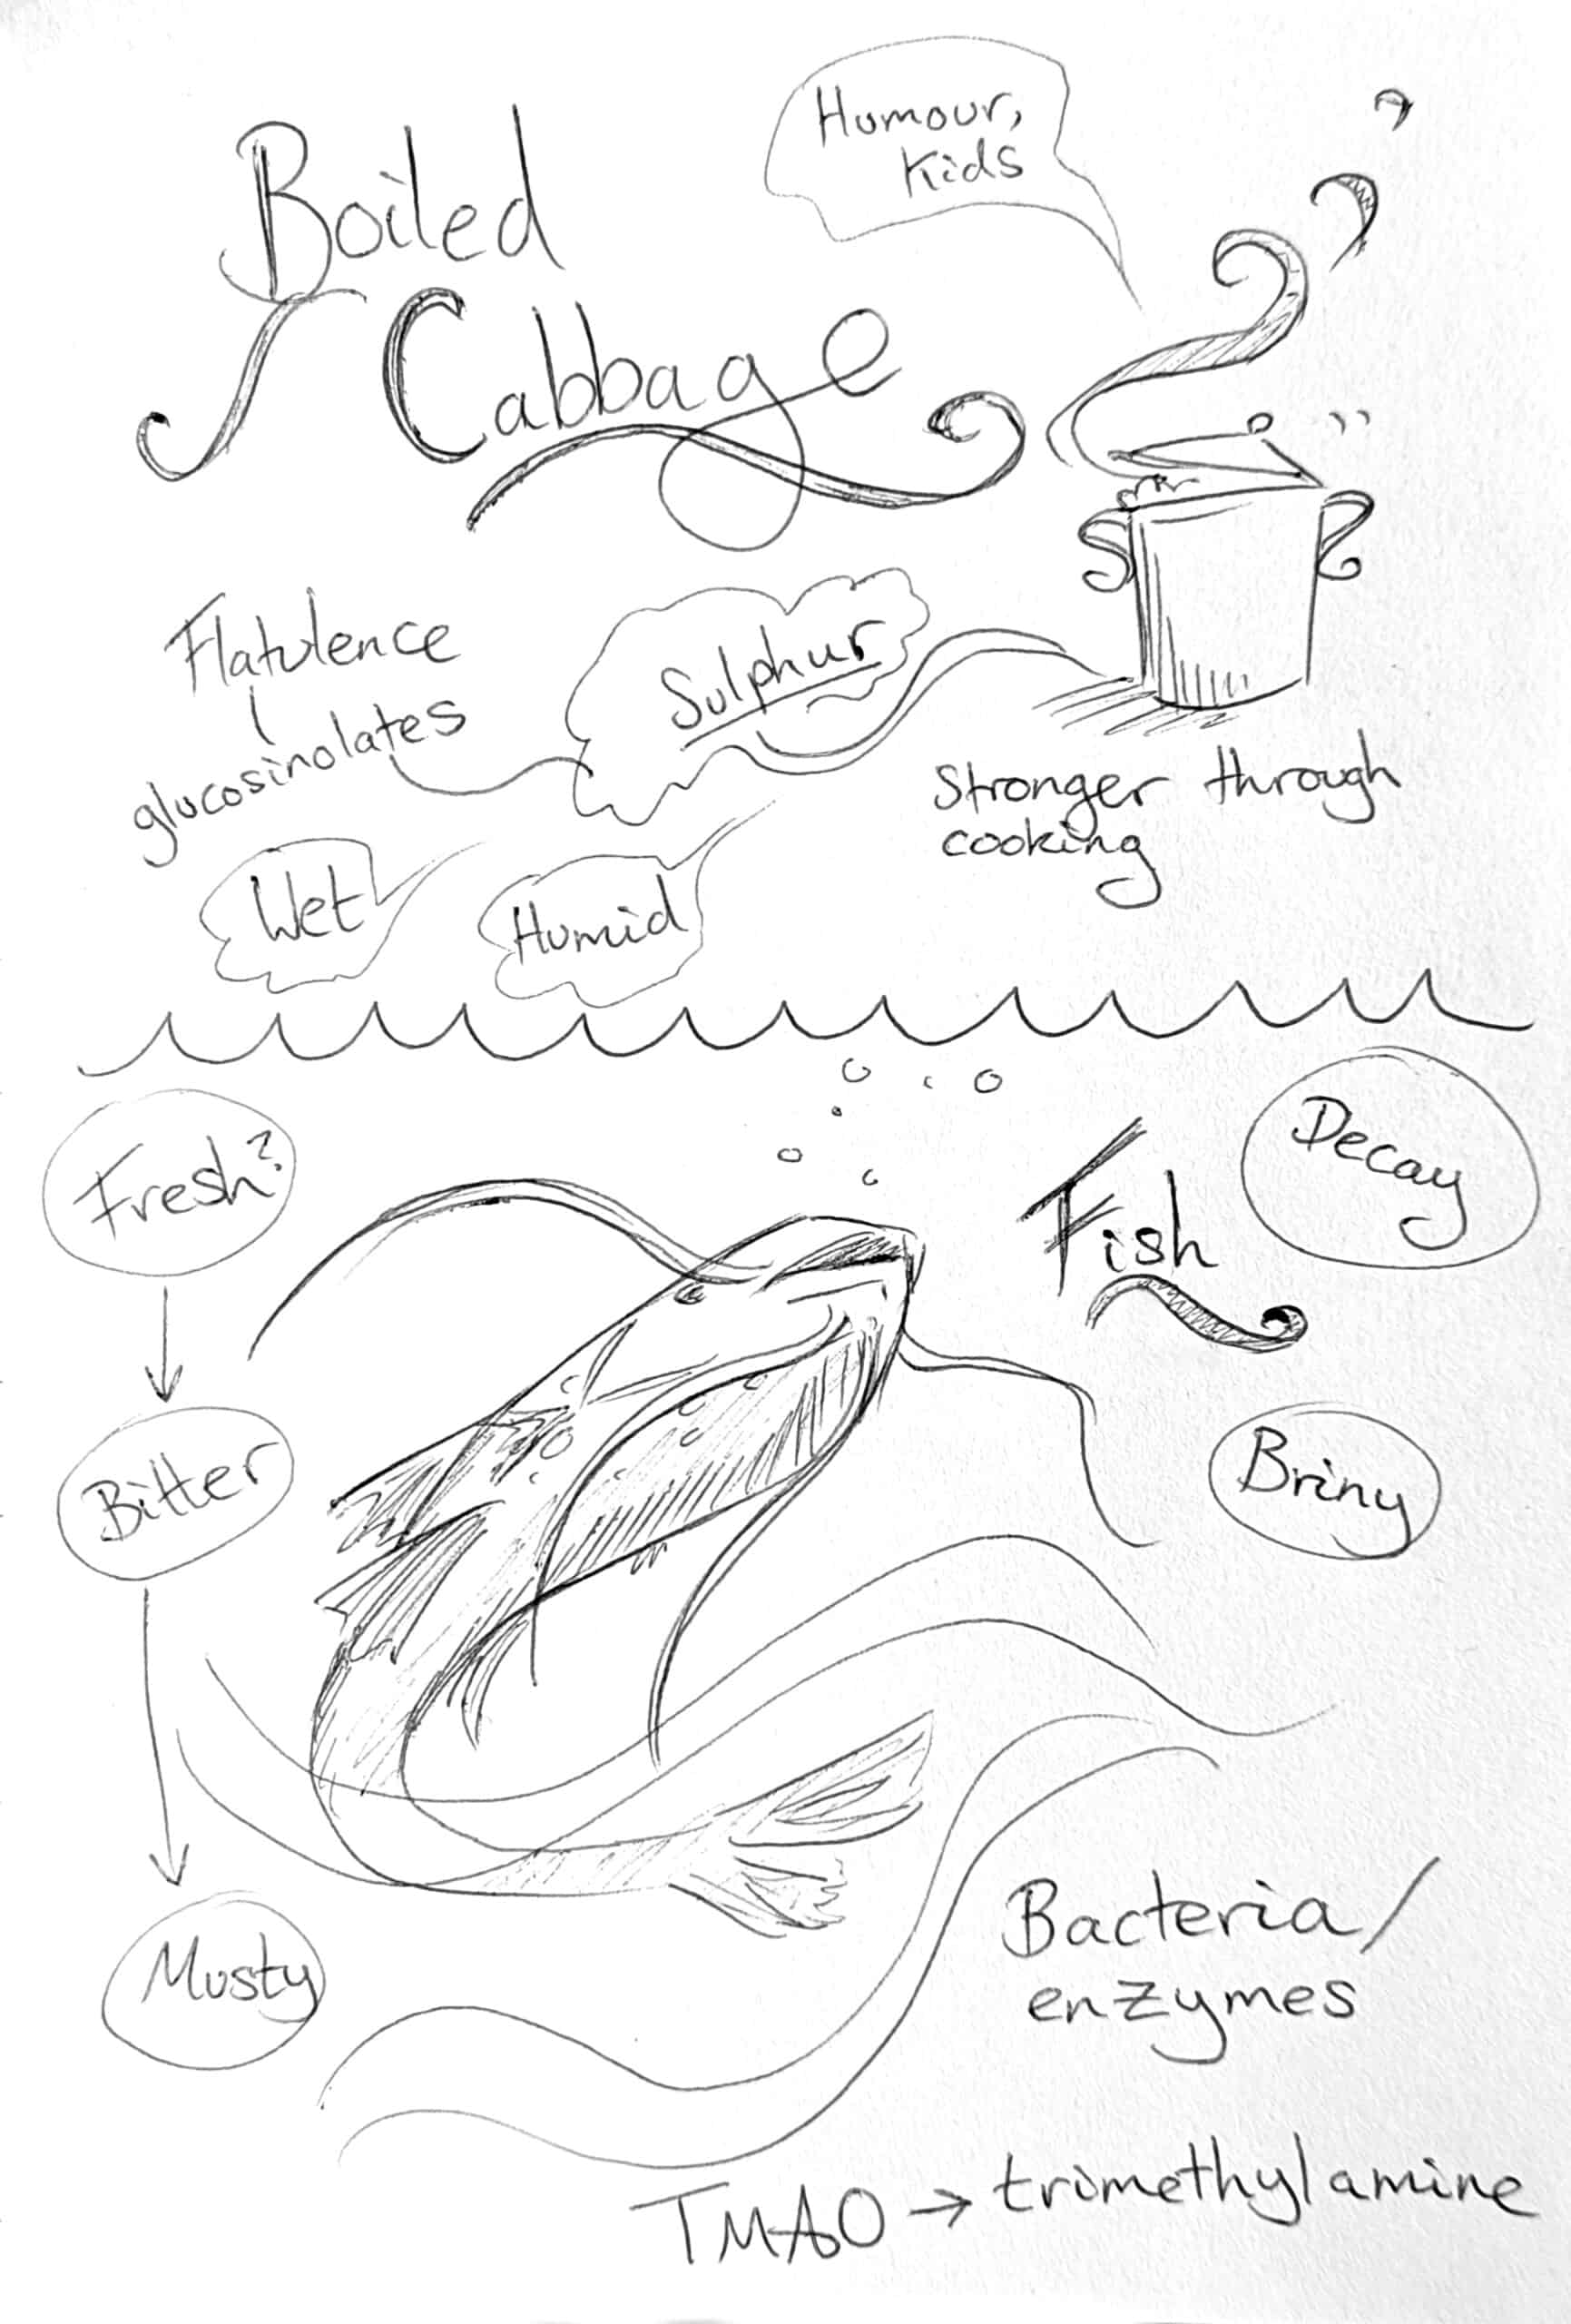 Boiled
Cabbage
Humour,
Kids
Flatulence
glucosinolates
Sulphur
Stronger through
cooking
Wet
Humid
Fresh?
Bitter
Musty
Fish
Decay
Briny
Bacteria/
enzymes
TMAO → trimethylamine